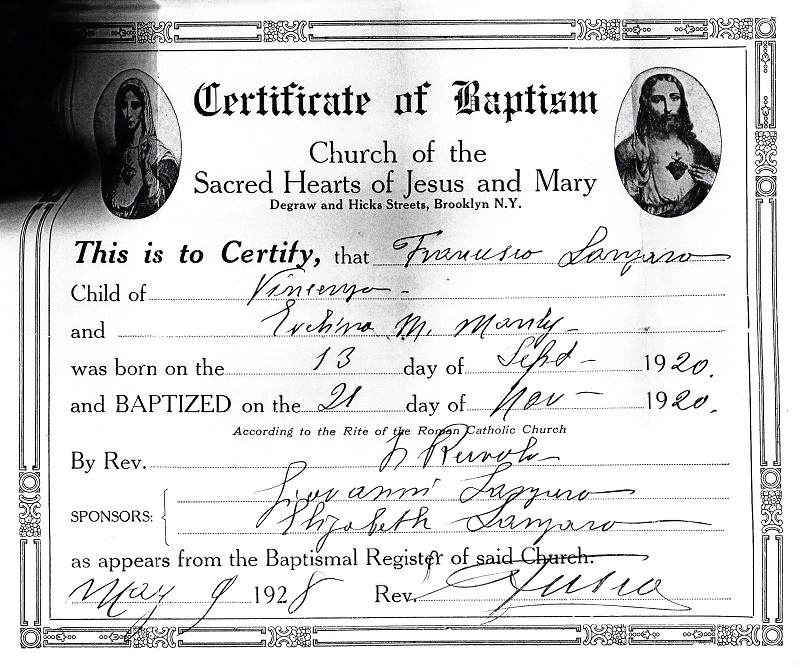 Certificate of Baptism
Church of the
Sacred Hearts of Jesus and Mary
Degraw and Hicks Streets, Brooklyn N.Y.
This is to Certify, that Francesco Lanzaro
Child of Vincenzo
and Evelina M.
was born on the 13 day of Sept 1920.
and BAPTIZED on the 21 day of Nov 1920.
According to the Rite of the Roman Catholic Church
By Rev.
Giovanni Lanzaro
SPONSORS:
Elizabeth Lanzaro
as appears from the Baptismal Register of said Church.
May 9 1928 Rev.